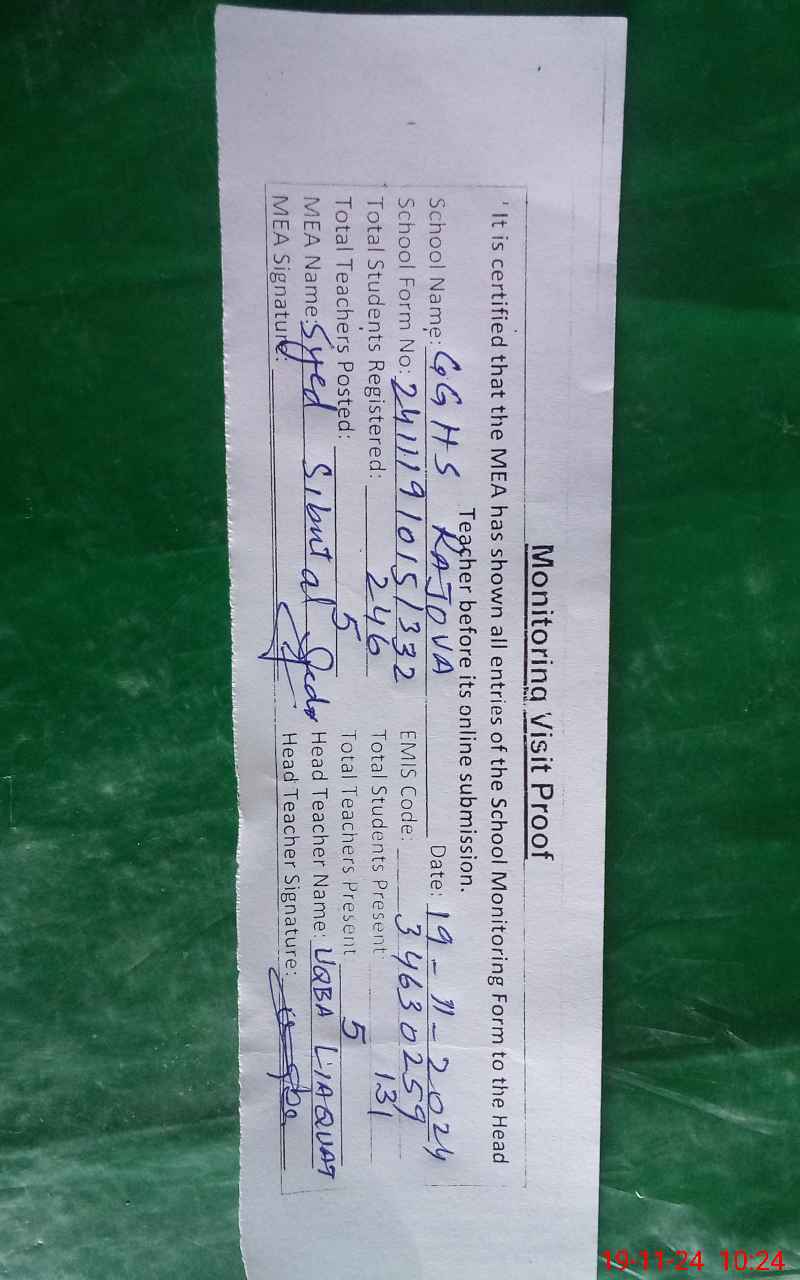 Monitoring Visit Proof
It is certified that the MEA has shown all entries of the School Monitoring Form to the Head
Teacher before its online submission.
School Name: GGHS RAJOVA Date: 19-11-2024
School Form No: 24111910151332 EMIS Code: 34630259
Total Students Registered: 246 Total Students Present 131
Total Teachers Posted: 5 Total Teachers Present 5
MEA Name: Syed Sibutal Head Teacher Name: UQBA LIAQUAT
MEA Signature: Head Teacher Signature:
19-11-24 10:24